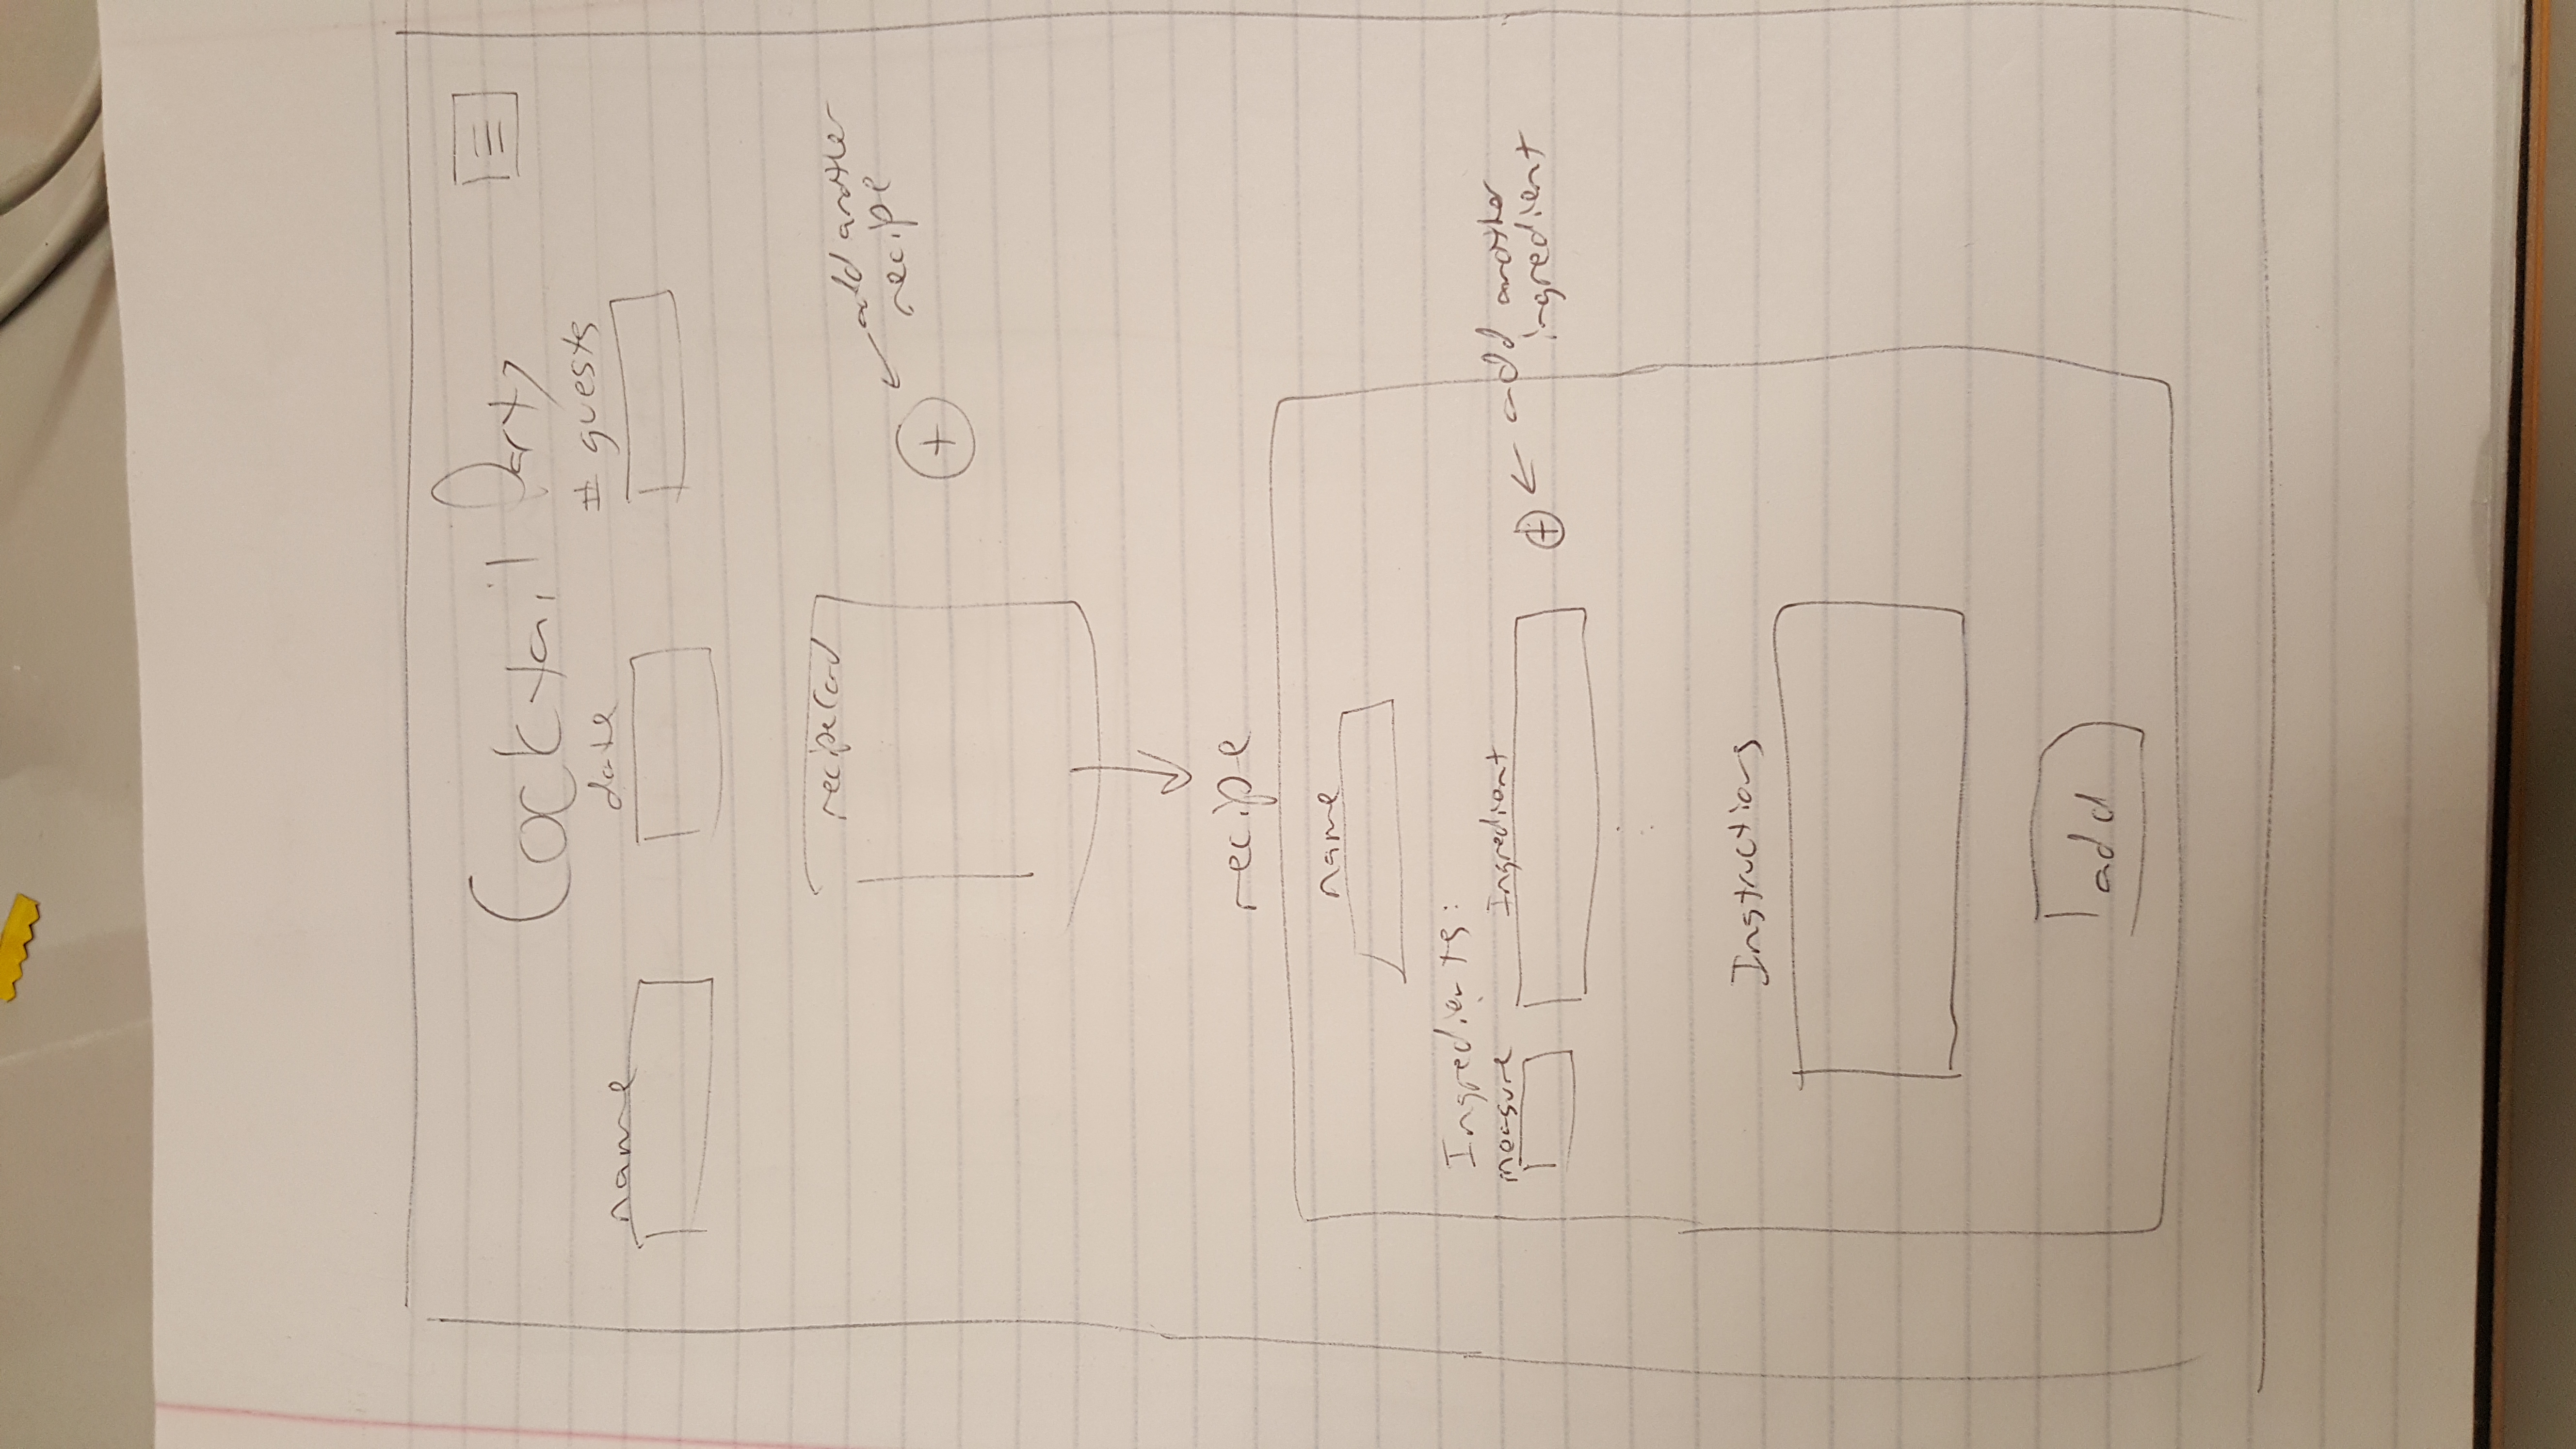 Cocktail Party
name
date
# guests
recipeCard
add another
recipe
+
recipe
name
Ingredients:
measure
Ingredient
+
add another
ingredient
Instructions
add